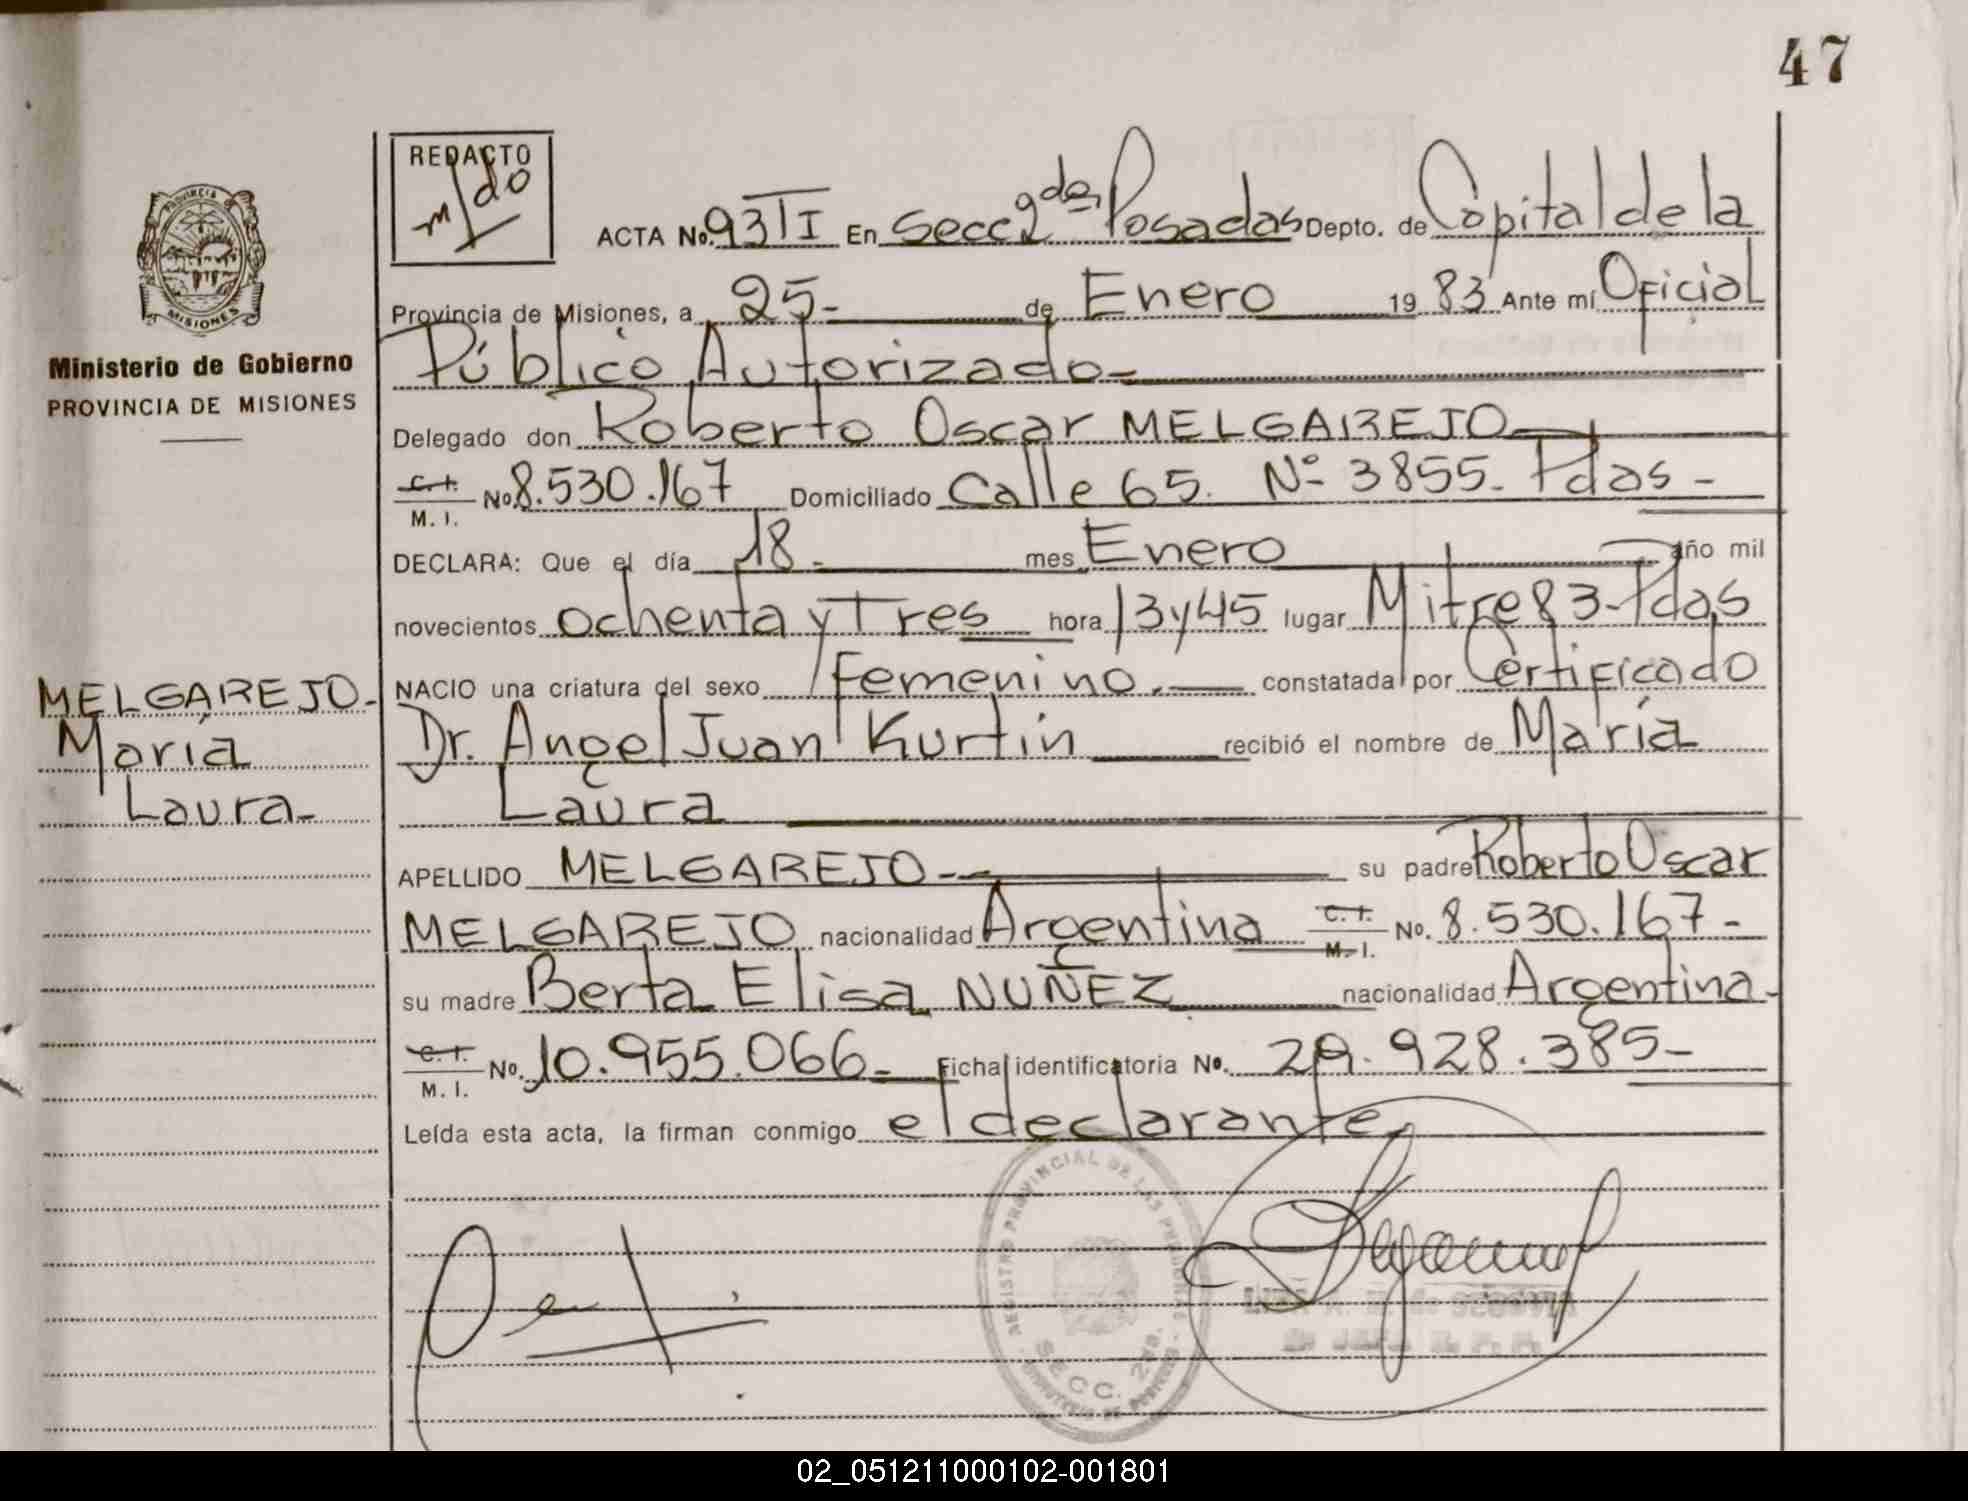 47
REDACTO
ACTA No. 93 TI En Secc 2da Posadas Depto. de Capital de la
Provincia de Misiones, a 25- de Enero 19 83 Ante mí Oficial
Público Autorizado-
Ministerio de Gobierno
PROVINCIA DE MISIONES
MISIONES
Delegado don Roberto Oscar MELGAREJO
C. I. M. I. No 8.530.167 Domiciliado Calle 65. Nº 3855- Pdas-
DECLARA: Que el día 18- mes Enero año mil
novecientos ochenta y Tres hora 13 y 45 lugar Mitre 83-Pdas
NACIO una criatura del sexo femenino.- constatada por Certificado
Dr. Angel Juan Kurtin recibió el nombre de María
Laura
MELGAREJO-
María
Laura-
APELLIDO MELGAREJO-- su padre Roberto Oscar
MELGAREJO nacionalidad Argentina C. I. M. I. No. 8.530.167-
su madre Berta Elisa NUÑEZ nacionalidad Argentina-
C. I. M. I. No. 10.955.066- Ficha identificatoria No. 29.928.385-
Leída esta acta, la firman conmigo el declarante
REGISTRO PROVINCIAL DE LAS PERSONAS
SECC. 2da.
02_051211000102-001801